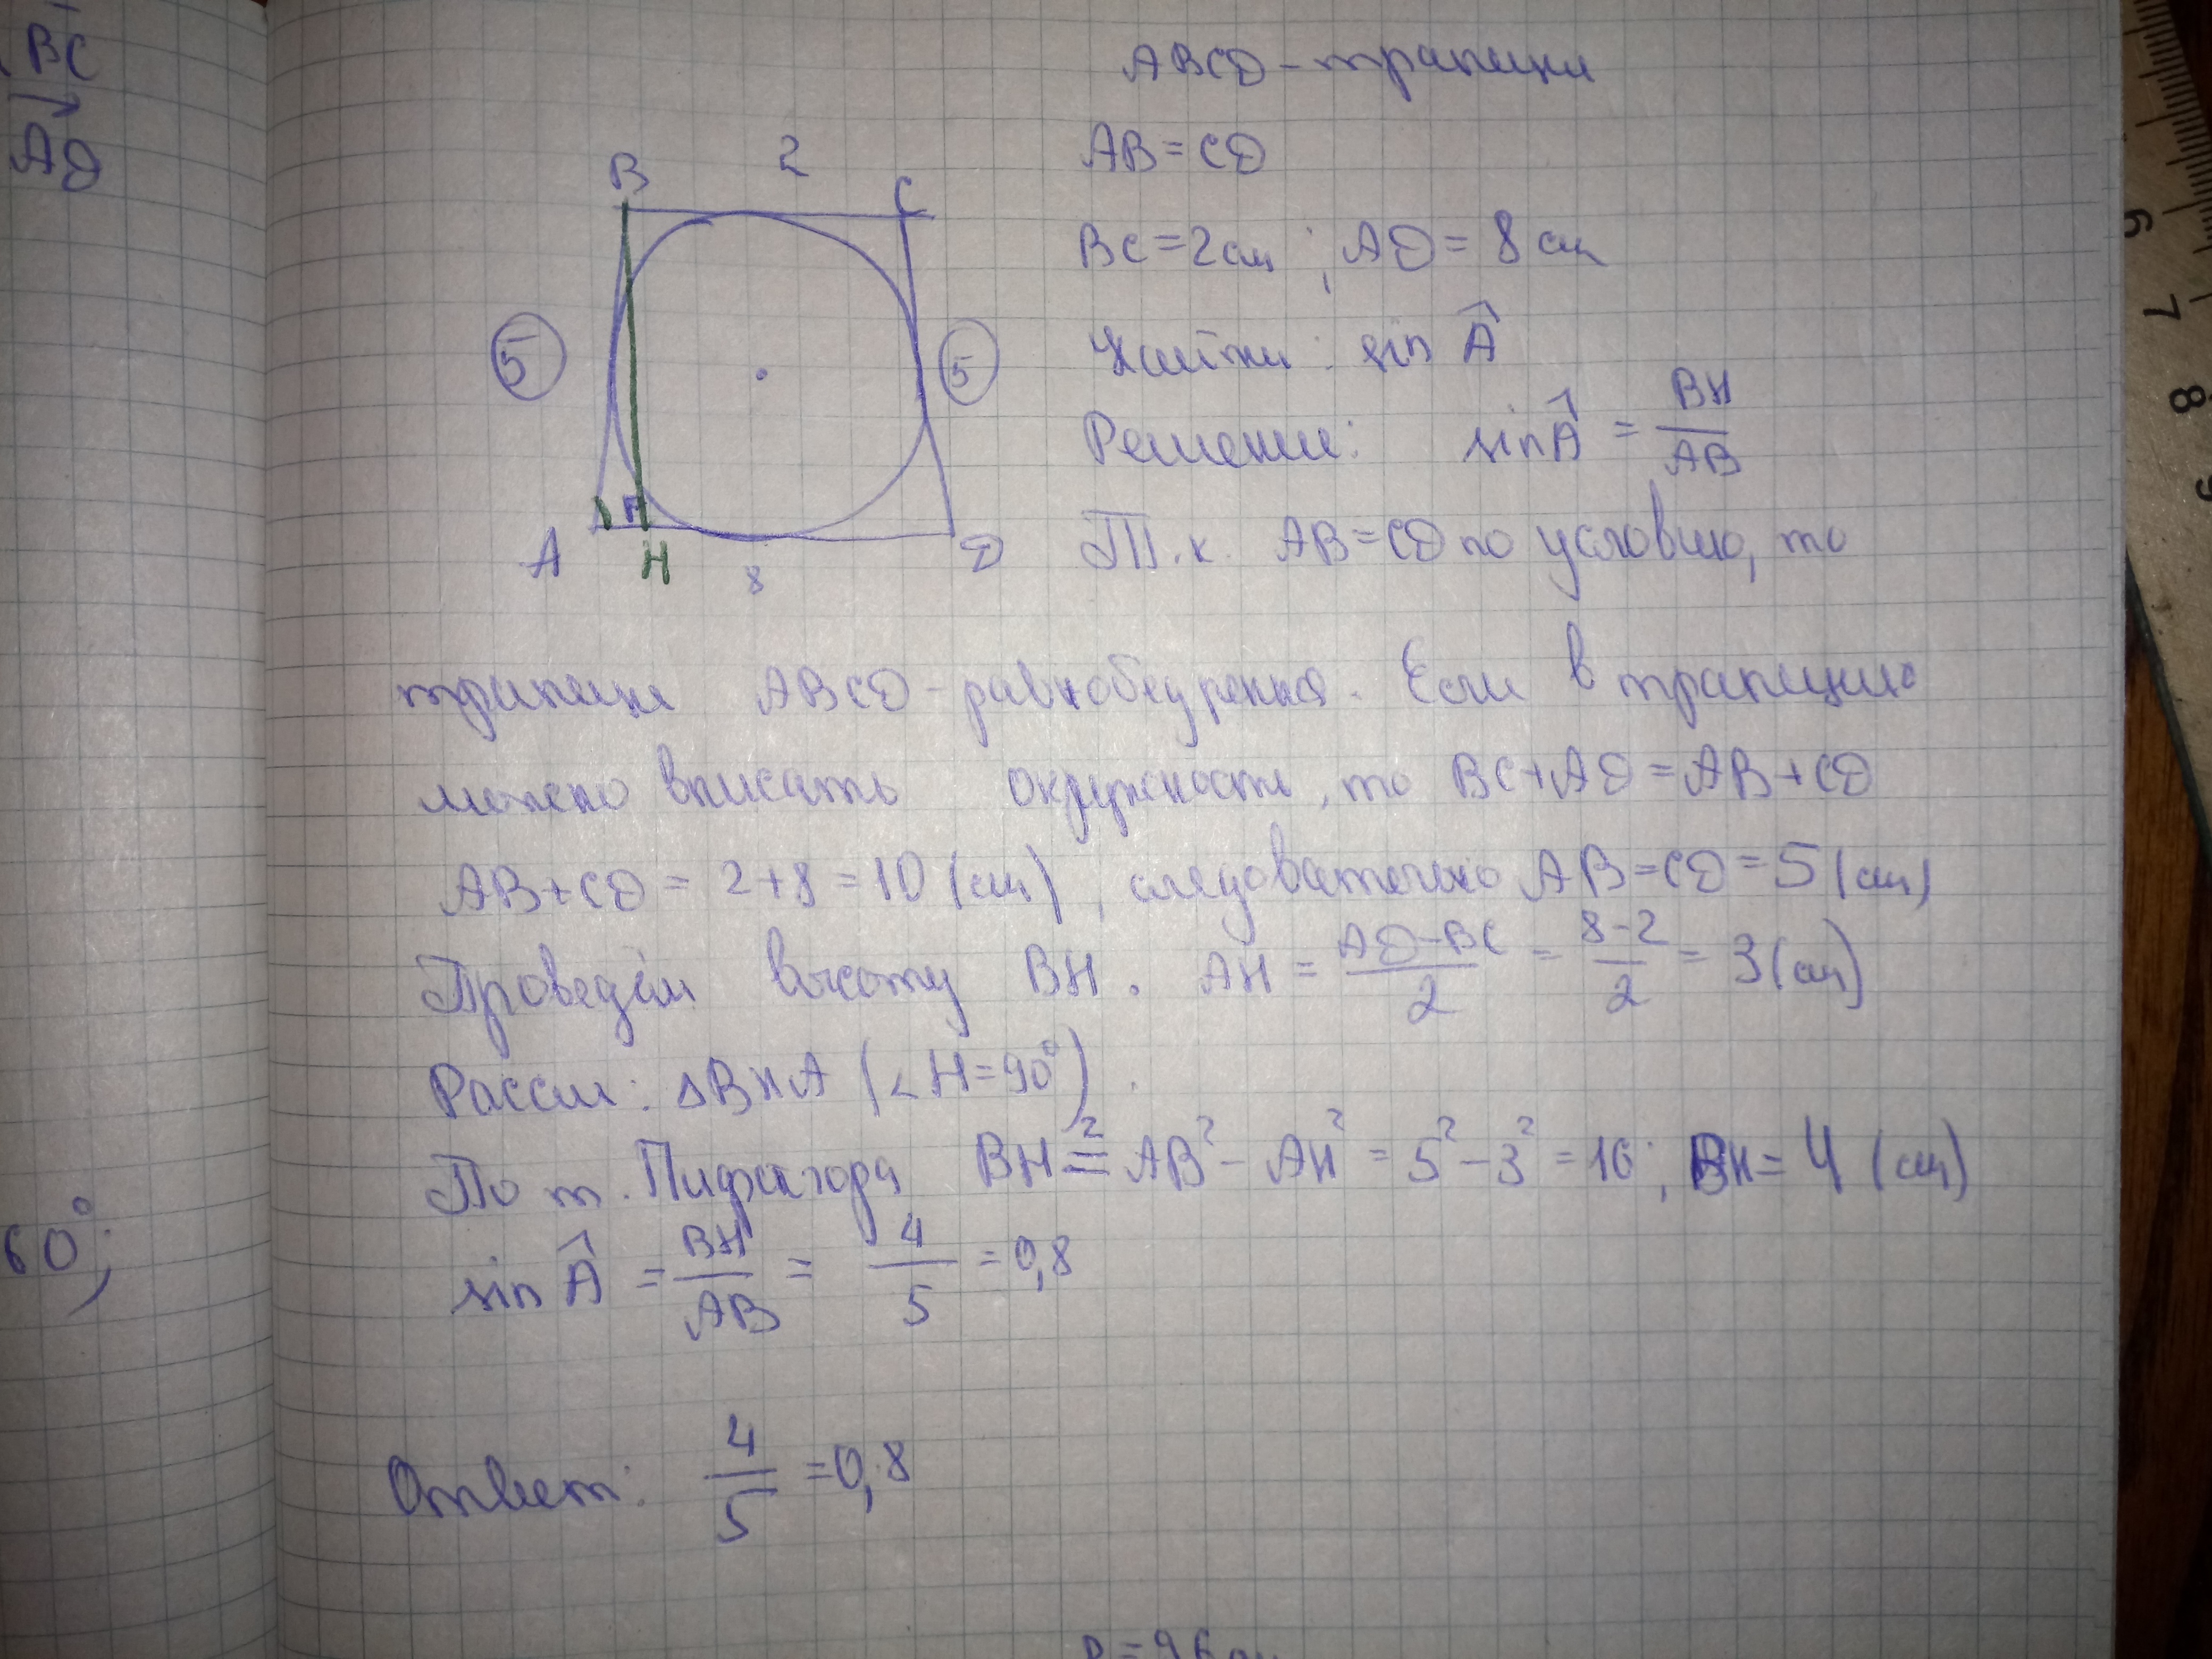 BC
AD
60°;
ABCD - трапеция
AB = CD
BC = 2 см ; AD = 8 см
Найти: sin A
Решение: sin A = BH/AB
Т.к. AB = CD по условию, то
трапеция ABCD - равнобедренная. Если в трапецию
можно вписать окружность, то BC + AD = AB + CD
AB + CD = 2 + 8 = 10 (см), следовательно AB = CD = 5 (см)
Проведём высоту BH. AH = (AD - BC)/2 = (8 - 2)/2 = 3 (см)
Рассм: ΔBHA (∠H = 90°).
По т. Пифагора BH² = AB² - AH² = 5² - 3² = 16; BH = 4 (см)
sin A = BH/AB = 4/5 = 0,8
Ответ: 4/5 = 0,8
B 2 C
5 5
A H 8 D
6
7
8
9